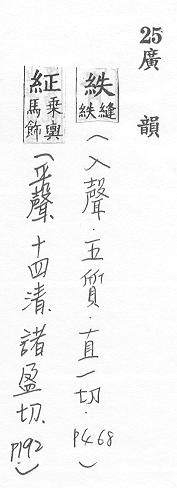 25廣韻
紩 縫紩（入聲．五質．直一切．P468）
紅 乘輿馬飾（平聲、十四清、諸盈切、P192．）